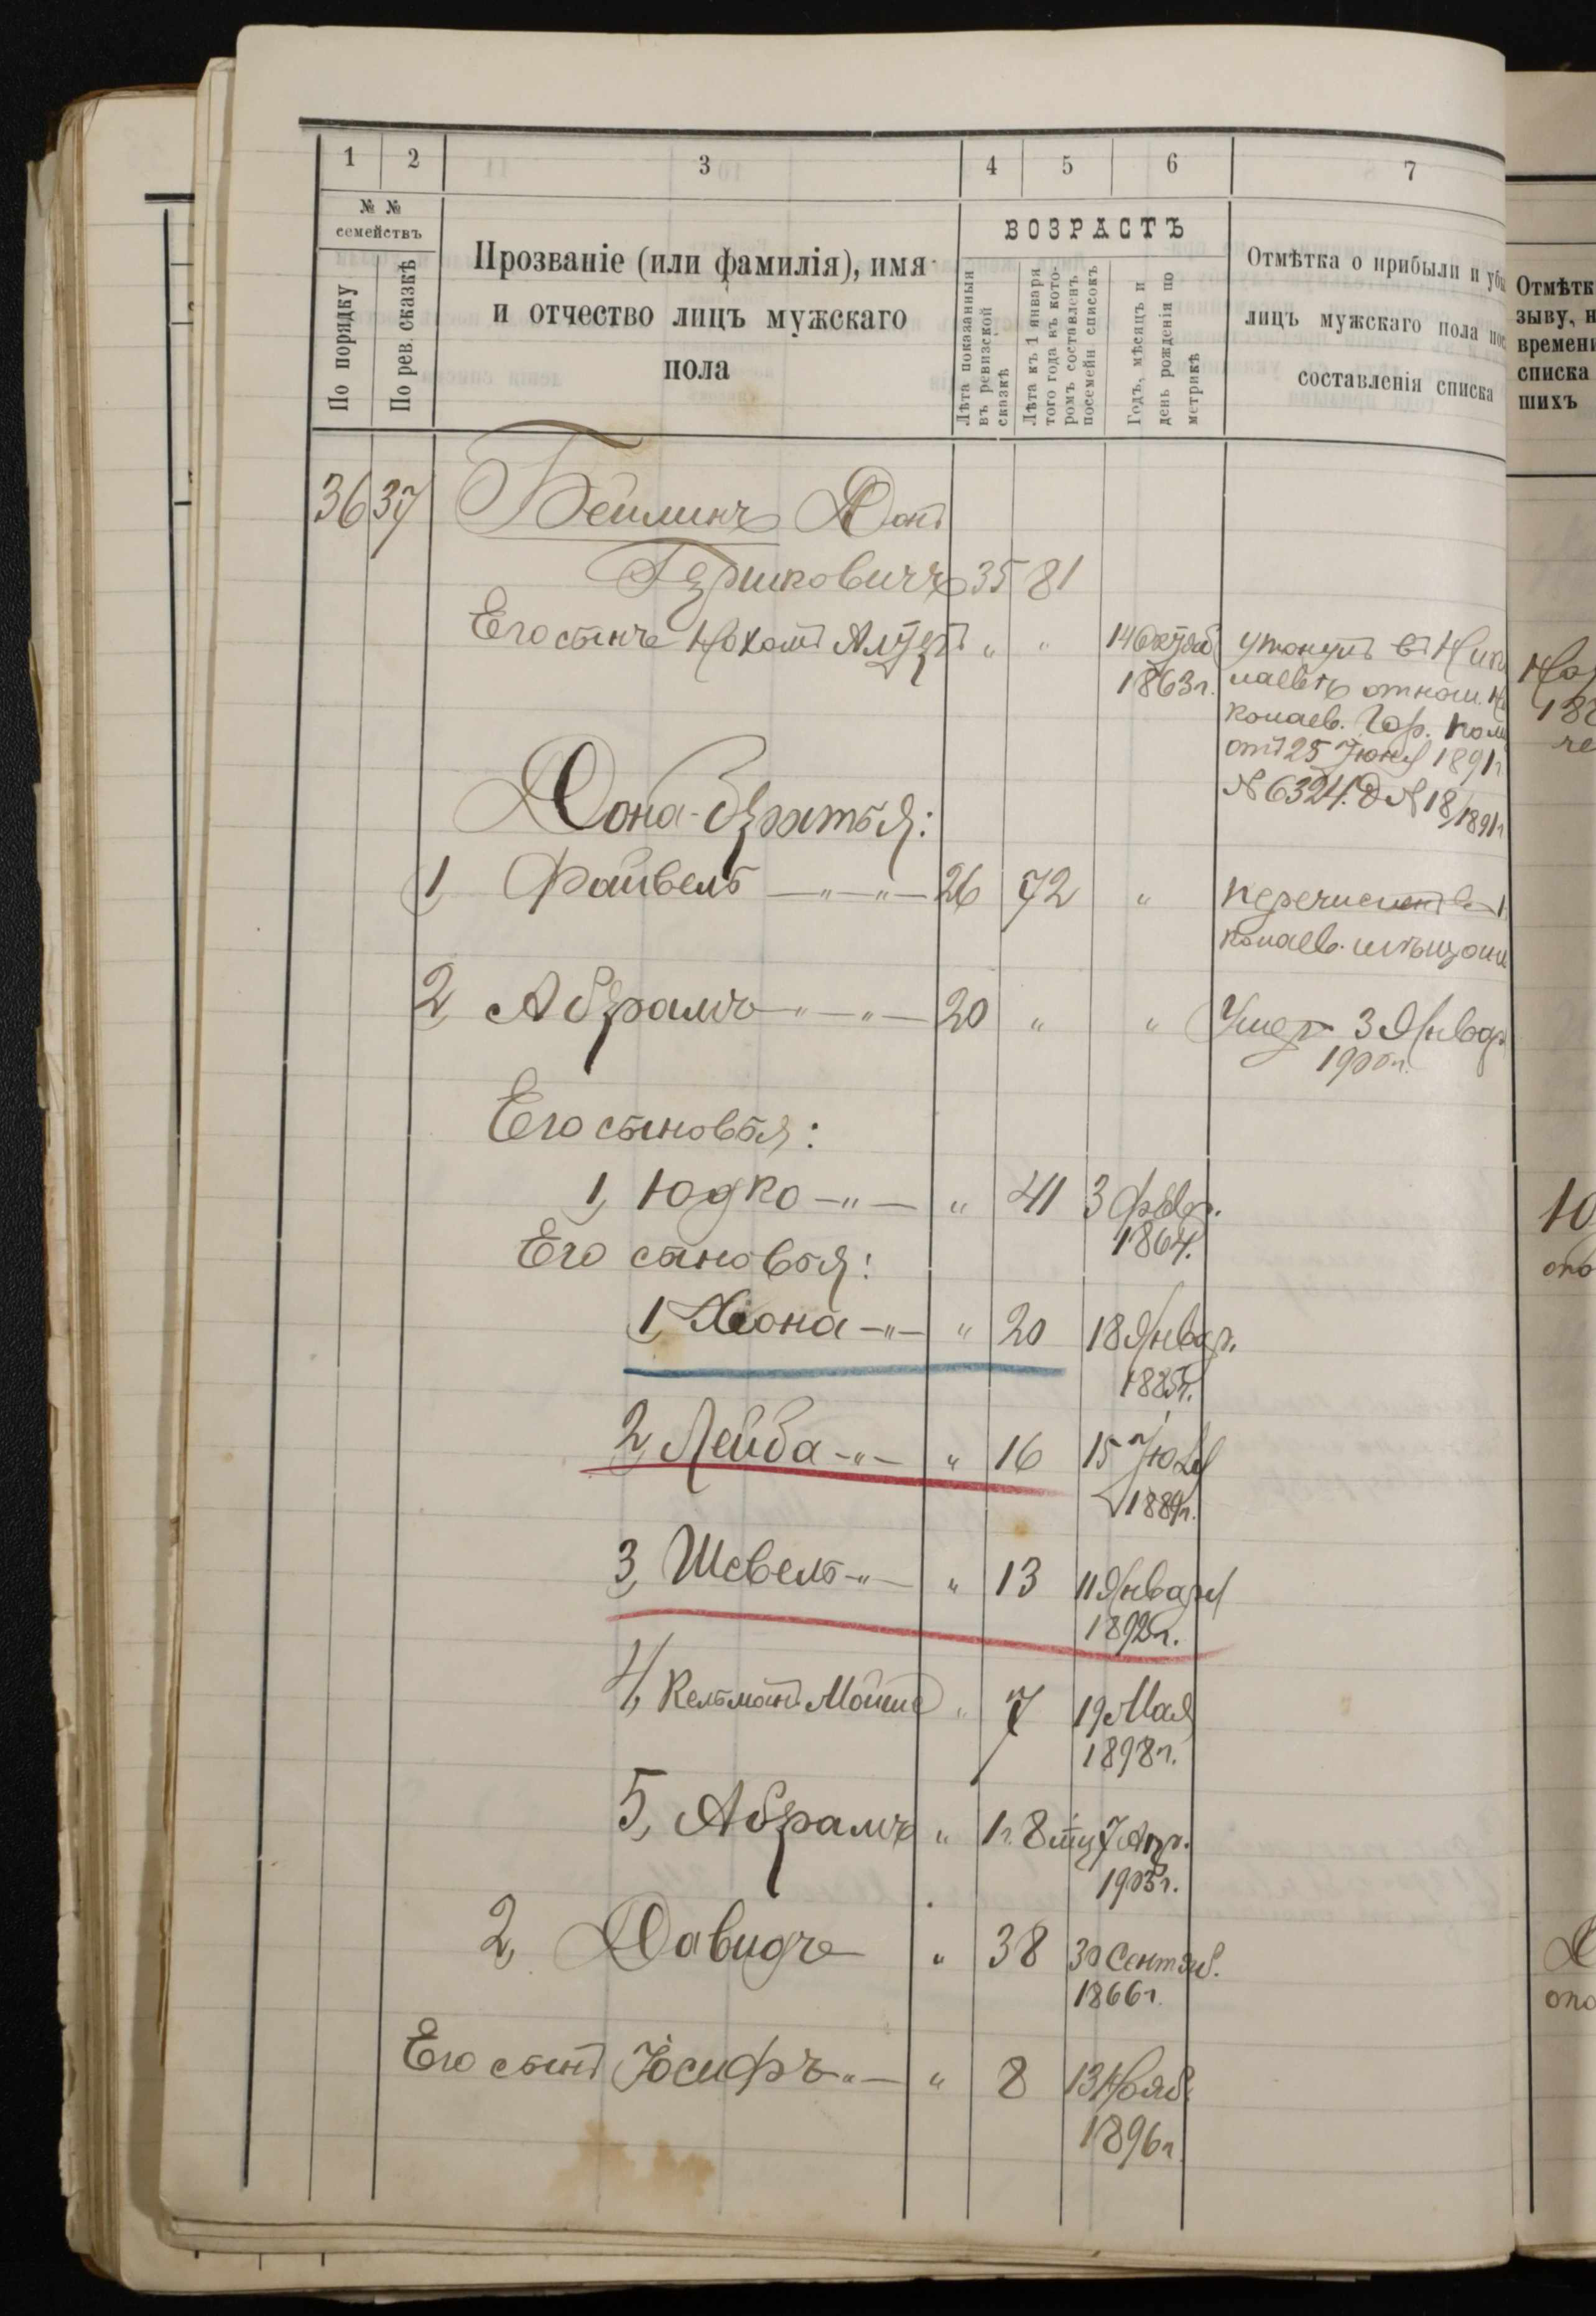 1 2 3 4 5 6 7
№ № семействъ
По порядку
По рев. сказкѣ
Прозваніе (или фамилія), имя
и отчество лицъ мужскаго
пола
ВОЗРАСТЪ
Лѣта показанныя
въ ревизской
сказкѣ
Лѣта къ 1 января
того года въ кото-
ромъ составленъ
посемейн списокъ
Годъ, мѣсяцъ и
день рожденія по
метрикѣ
Отмѣтка о прибыли и убы
лицъ мужскаго пола пос
составленія списка
Отмѣтк
зыву, н
времени
списка
шихъ
36 37 Бейлинъ Донъ
Гершковичъ 35 81
Его сынъ Нохомъ Алтеръ " " 14 Октяб
1863 г.
утонулъ въ Нико
лаевѣ отнош. Ни
колаев. Гор. Пол
отъ 25 Іюня 1891 г
№ 6324. д № 18/1891 г
Дона братья:
1, Файвель —"—"— 26 72 "
перечисленъ въ
колаев. мѣщане
2, Абрамъ —"—"— 20 " " Умер 3 Январ
1900 г.
Его сыновья:
1, Юдко —"— " 41 3 Февр.
1864.
Его сыновья:
1, Хіона —"— " 20 18 Январ.
1885 г.
2, Лейба —"— " 16 15 Іюля
1889 г.
3, Шевель —"— " 13 11 Января
1892 г.
4, Кельманъ Мойше " 7 19 Мая
1898 г.
5, Абрамъ " 1 г. 8 мц 7 Апр.
1903 г.
2, Давидъ " 38 30 Сентяб.
1866 г.
Его сынъ Іосифъ —"— " 8 13 Нояб.
1896 г